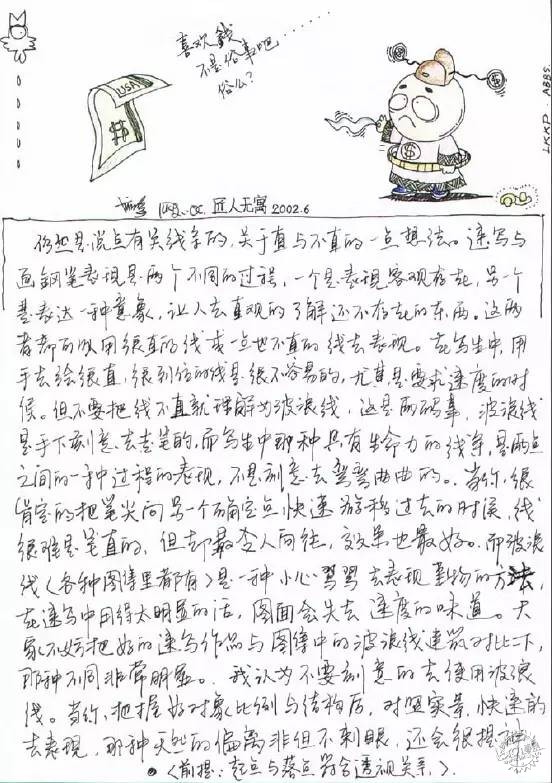 喜欢钱
不是俗事吧
俗么?
USA
$
$
$
$
LKKP. ABBS.
匠人无寓 2002.6
仍然是说点有关线条的,关于直与不直的一点想法。速写与
画钢笔表现是两个不同的过程,一个是表现客观存在,另一个
是表达一种意象,让人去直观的了解还不存在的东西。这两
者都可以用很直的线或一点也不直的线去表现。在写生中,用
手去绘很直,很到位的线是很不容易的,尤其是要求速度的时
候。但不要把线不直就理解为波浪线,这是两码事,波浪线
是手下刻意去走笔的,而写生中那种具有生命力的线条,是两点
之间的一种过程的表现,不是刻意去弯弯曲曲的。当你,很
肯定的把笔尖向另一个确定点快速游移过去的时候,线
很难是笔直的,但却最令人向往,效果也最好。而波浪
线(各种图得里都有)是一种小心翼翼去表现事物的方法,
在速写中用得太明显的话,图面会失去速度的味道。大
家不妨把好的速写作品与图得中的波浪线速写对比一下,
那种不同非常明显。我认为不要刻意的去使用波浪
线。当你,把握好对象比例与结构后,对照实景,快速的
去表现,那种天然的偏离非但不刺眼,还会很提
(前提:起点与落点符合透视关系)。